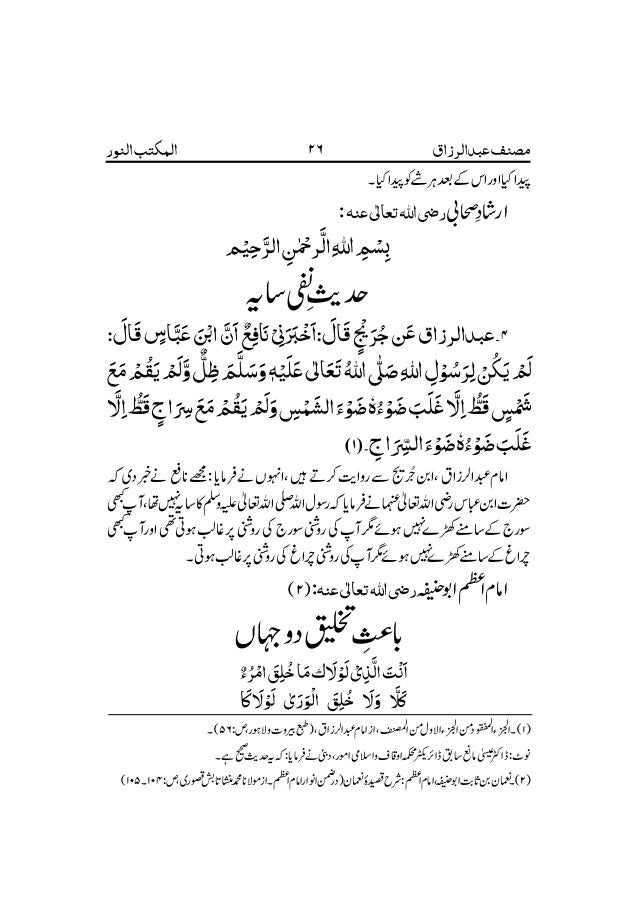 مصنف عبدالرزاق ۲۶ المکتب النور
پیدا کیا اور اس کے بعد ہر شے کو پیدا کیا۔
ارشادِ صحابی رضی اللہ تعالیٰ عنہ :
بِسْمِ اللهِ الرَّحْمٰنِ الرَّحِیْمِ
حدیثِ نفی سایہ
۴۔ عبدالرزاق عَن جُرَیْجٍ قَالَ: اَخْبَرَنِیْ نَافِعٌ اَنَّ ابْنَ عَبَّاسٍ قَالَ:
لَمْ یَکُنْ لِرَسُوْلِ اللهِ صَلَّی اللهُ تَعَالٰی عَلَیْهِ وَسَلَّمَ ظِلٌّ وَّلَمْ یَقُمْ مَعَ
شَمْسٍ قَطُّ اِلَّا غَلَبَ ضَوْءُهٗ ضَوْءَ الشَّمْسِ وَلَمْ یَقُمْ مَعَ سِرَاجٍ قَطُّ اِلَّا
غَلَبَ ضَوْءُهٗ ضَوْءَ السِّرَاجِ۔ (۱)
امام عبدالرزاق، ابن جُریج سے روایت کرتے ہیں، انہوں نے فرمایا: مجھے نافع نے خبر دی کہ
حضرت ابن عباس رضی اللہ تعالیٰ عنہما نے فرمایا کہ رسول اللہ صلی اللہ تعالیٰ علیہ وسلم کا سایہ نہیں تھا، آپ کبھی
سورج کے سامنے کھڑے نہیں ہوئے مگر آپ کی روشنی سورج کی روشنی پر غالب ہوتی تھی اور آپ کبھی
چراغ کے سامنے کھڑے نہیں ہوئے مگر آپ کی روشنی چراغ کی روشنی پر غالب ہوتی۔
امام اعظم ابوحنیفہ رضی اللہ تعالیٰ عنہ: (۲)
باعثِ تخلیق دو جہاں
اَنْتَ الَّذِیْ لَوْلَاكَ مَا خُلِقَ امْرُءٌ
کَلَّا وَلَا خُلِقَ الْوَرٰی لَوْلَاكَا
(۱)۔ الجزء المفقود من الجزء الاول من المصنف، از امام عبدالرزاق، (طبع بیروت و لاہور، ص: ۵۶)۔
نوٹ: ڈاکٹر عیسیٰ مانع سابق ڈائریکٹر محکمہ اوقاف و اسلامی امور، دبئی نے فرمایا: کہ یہ حدیث صحیح ہے۔
(۲)۔ نعمان بن ثابت ابوحنیفہ، امام اعظم: شرح قصیدۂ نعمان (در ضمن انوار امام اعظم۔ از مولانا محمد منشا تابش قصوری، ص: ۱۰۴۔۱۰۵)